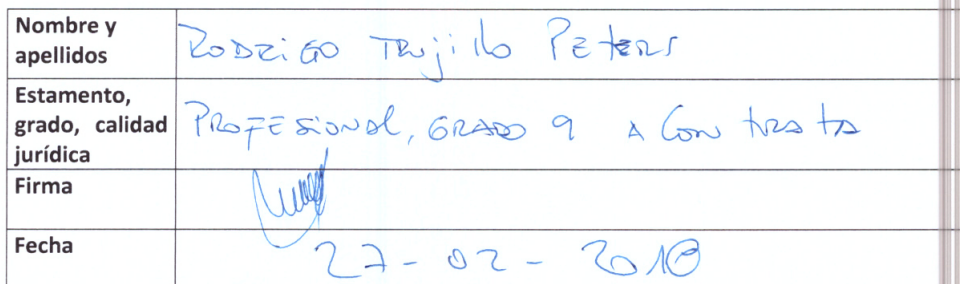 Nombre y apellidos
Rodrigo Trujillo Peters
Estamento, grado, calidad jurídica
Profesional, Grado 9 a Contrata
Firma
Fecha
27-02-2018